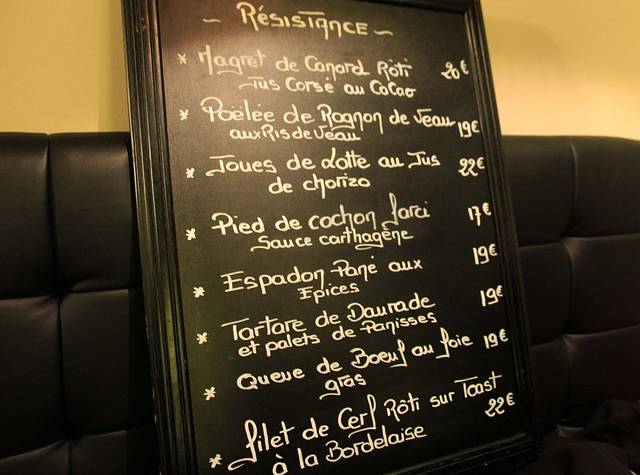 ~ Résistance ~
* Magret de Canard Rôti 20€
Jus Corsé au Cacao
* Poëlée de Rognon de Veau
aux Ris de Veau 19€
* Joues de Lotte au Jus 22€
de chorizo
* Pied de cochon farci 17€
Sauce carthagène
* Espadon Pané aux 19€
Epices
* Tartare de Daurade 19€
et palets de Panisses
* Queue de Boeuf au foie 19€
gras
* filet de Cerf Rôti sur Toast
à la Bordelaise 22€